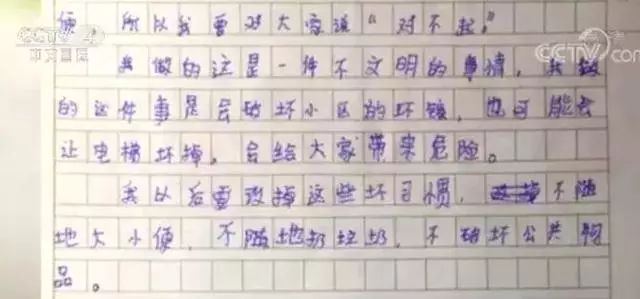 便，所以我要对大家说“对不起。”
我做的这是一件不文明的事情，我做
的这件事是会破坏小区的环镜，也可能会
让电梯坏掉，会给大家带来危险。
我以后要改掉这些坏习惯，不随
地大小便，不随地扔垃圾，不破坏公共物
品。
CCTV 4
中文国际
CCTV.com